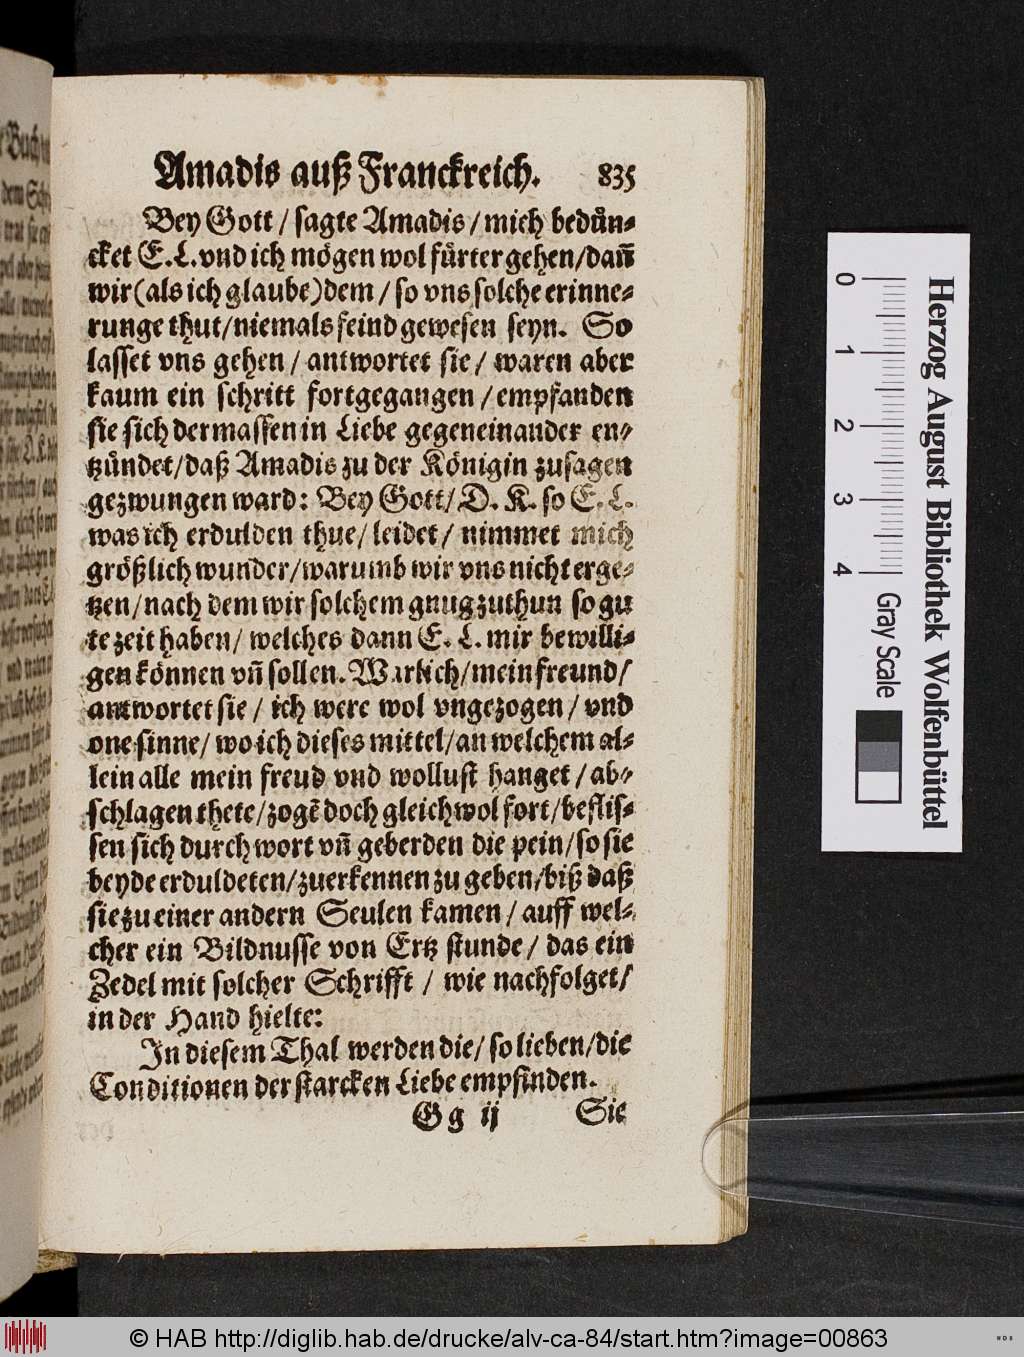 Amadis auß Franckreich. 835
Bey Gott / sagte Amadis / mich bedůn-
cket E. L. vnd ich mögen wol fůrter gehen / dañ
wir (als ich glaube) dem / so vns solche erinne-
runge thut / niemals feind gewesen seyn. So
lasset vns gehen / antwortet sie / waren aber
kaum ein schritt fortgegangen / empfanden
sie sich dermassen in Liebe gegeneinander en-
tzůndet / daß Amadis zu der Königin zusagen
gezwungen ward: Bey Gott / D. K. so E. L.
was ich erdulden thue / leidet / nimmet mich
größlich wunder / warumb wir vns nicht erge-
tzen / nach dem wir solchem gnug zuthun so gu
te zeit haben / welches dann E. L. mir bewilli-
gen können vñ sollen. Warlich / mein freund /
antwortet sie / ich were wol vngezogen / vnd
one sinne / wo ich dieses mittel / an welchem al-
lein alle mein freud vnd wollust hanget / ab-
schlagen thete / zogẽ doch gleichwol fort / beflis-
sen sich durch wort vñ geberden die pein / so sie
beyde erduldeten / zuerkennen zu geben / biß daß
sie zu einer andern Seulen kamen / auff wel-
cher ein Bildnusse von Ertz stunde / das ein
Zedel mit solcher Schrifft / wie nachfolget /
in der Hand hielte:
In diesem Thal werden die / so lieben / die
Conditionen der starcken Liebe empfinden.
Gg ij Sie
Herzog August Bibliothek Wolfenbüttel
0 1 2 3 4 Gray Scale
© HAB http://diglib.hab.de/drucke/alv-ca-84/start.htm?image=00863